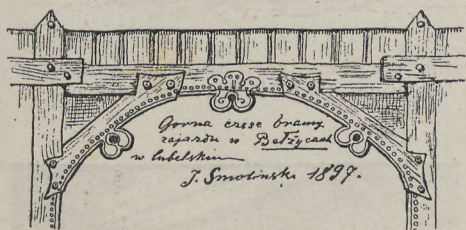 Gorna częsc bramy
zajazdu w Bełżycach
w lubelskiem
J. Smoliński 1897.